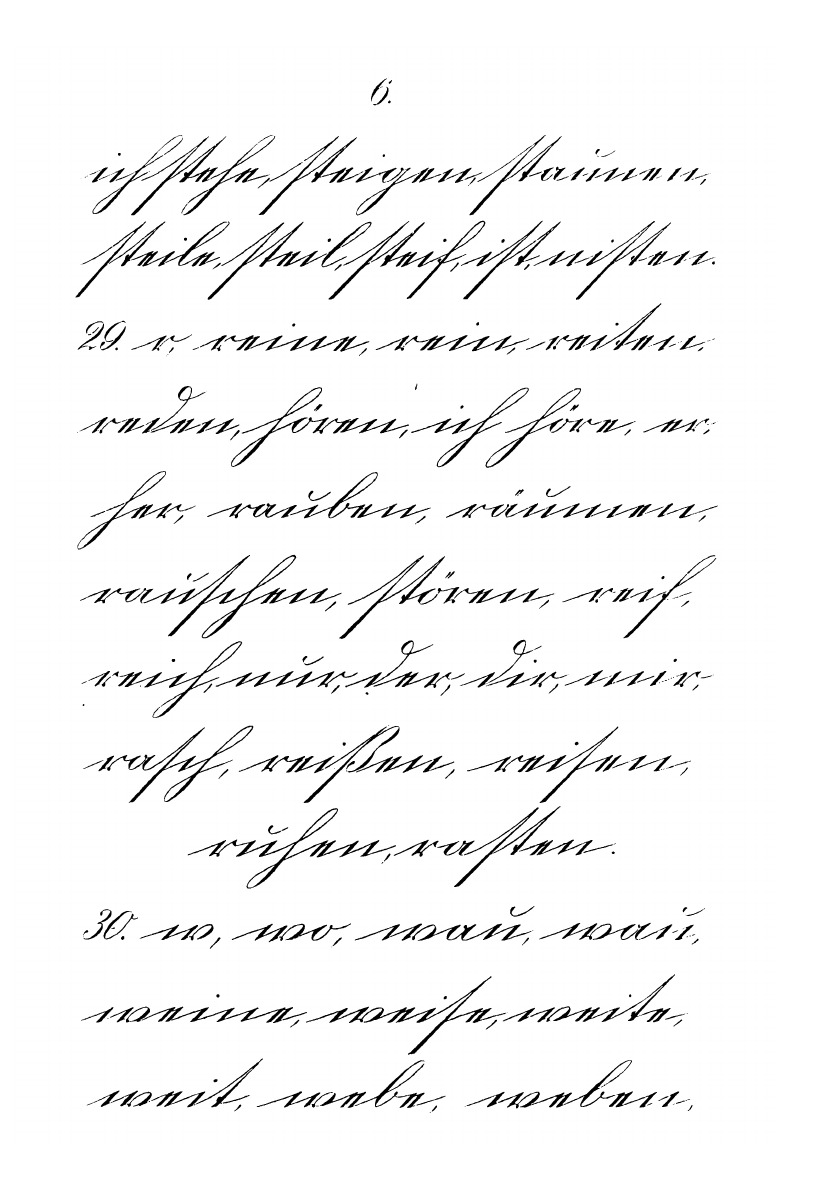 6.
ich stehe, steigen, staunen,
steile, steil, steif, ist, nisten.
29. r, reine, rein, reiten,
reden, hören, ich höre, er,
her, rauben, räumen,
rauschen, stören, reif,
reich, nur, der, dir, mir,
rasch, reißen, reisen,
ruhen, rasten.
30. w, wo, wau, wau,
weine, weise, weite,
weit, webe, weben,